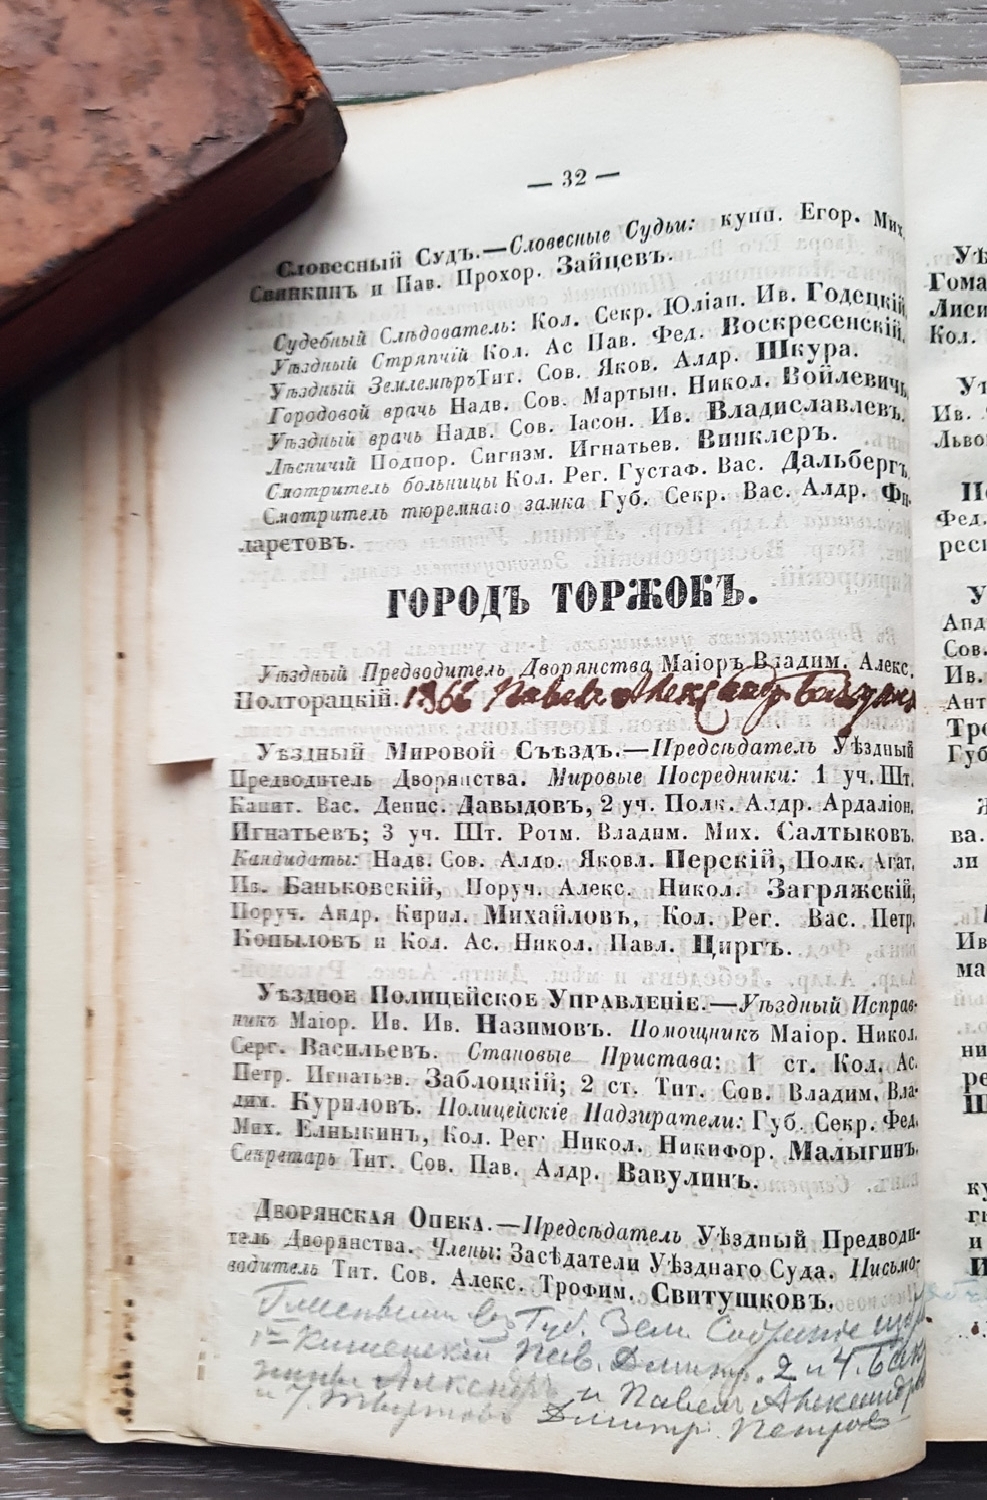 — 32 —
Словесный Судъ.—Словесные Судьи: купц. Егор. Мих.
Свинкинъ и Пав. Прохор. Зайцевъ.
Судебный Слѣдователь: Кол. Секр. Юліан. Ив. Годецкій.
Уѣздный Стряпчій Кол. Ас Пав. Фед. Воскресенскій.
Уѣздный Землемѣръ Тит. Сов. Яков. Алдр. Шкура.
Городовой врачь Надв. Сов. Мартын. Никол. Войлевичь
Уѣздный врачь Надв. Сов. Іасон. Ив. Владиславлевъ.
Лѣсничій Подпор. Сигизм. Игнатьев. Винклеръ.
Смотритель больницы Кол. Рег. Густаф. Вас. Дальбергъ
Смотритель тюремнаго замка Губ. Секр. Вас. Алдр. Фи-
ларетовъ.
ГОРОДЪ ТОРЖОКЪ.
Уѣздный Предводитель Дворянства Маіоръ Владим. Алекс.
Полторацкій. 1866 Павелъ Александр
Уѣздный Мировой Съѣздъ.—Предсѣдатель Уѣздный
Предводитель Дворянства. Мировые Посредники: 1 уч. Шт.
Капит. Вас. Денис. Давыдовъ, 2 уч. Полк. Алдр. Ардаліон.
Игнатьевъ; 3 уч. Шт. Ротм. Владим. Мих. Салтыковъ.
Кандидаты: Надв. Сов. Алдр. Яковл. Перскій, Полк. Агат.
Ив. Баньковскій, Поруч. Алекс. Никол. Загряжскій,
Поруч. Андр. Кирил. Михайловъ, Кол. Рег. Вас. Петр.
Копыловъ и Кол. Ас. Никол. Павл. Циргъ.
Уѣздное Полицейское Управленіе.—Уѣздный Исправ-
никъ Маіор. Ив. Ив. Назимовъ. Помощникъ Маіор. Никол.
Серг. Васильевъ. Становые Пристава: 1 ст. Кол. Ас.
Петр. Игнатьев. Заблоцкій; 2 ст. Тит. Сов. Владим. Вла-
дим. Куриловъ. Полицейскіе Надзиратели: Губ. Секр. Фед.
Мих. Елныкинъ, Кол. Рег. Никол. Никифор. Малыгинъ.
Секретарь Тит. Сов. Пав. Алдр. Вавулинъ.
Дворянская Опека.—Предсѣдатель Уѣздный Предводи-
тель Дворянства. Члены: Засѣдатели Уѣзднаго Суда. Письмо-
водитель Тит. Сов. Алекс. Трофим. Свитушковъ.
Губ. Зем. Собраніе
Пав. Дмитр. 2 и 4.
Александръ и Павелъ Александр
и 7. Дмитр. Петров
Уѣ
Гома
Лиси
Кол.
Ив.
Львов
Фед.
реск
У
Апд
Сов.
Ив.
Ант
Тро
Губ
ва.
ли
Ив
ма
ни
ре
ку
и